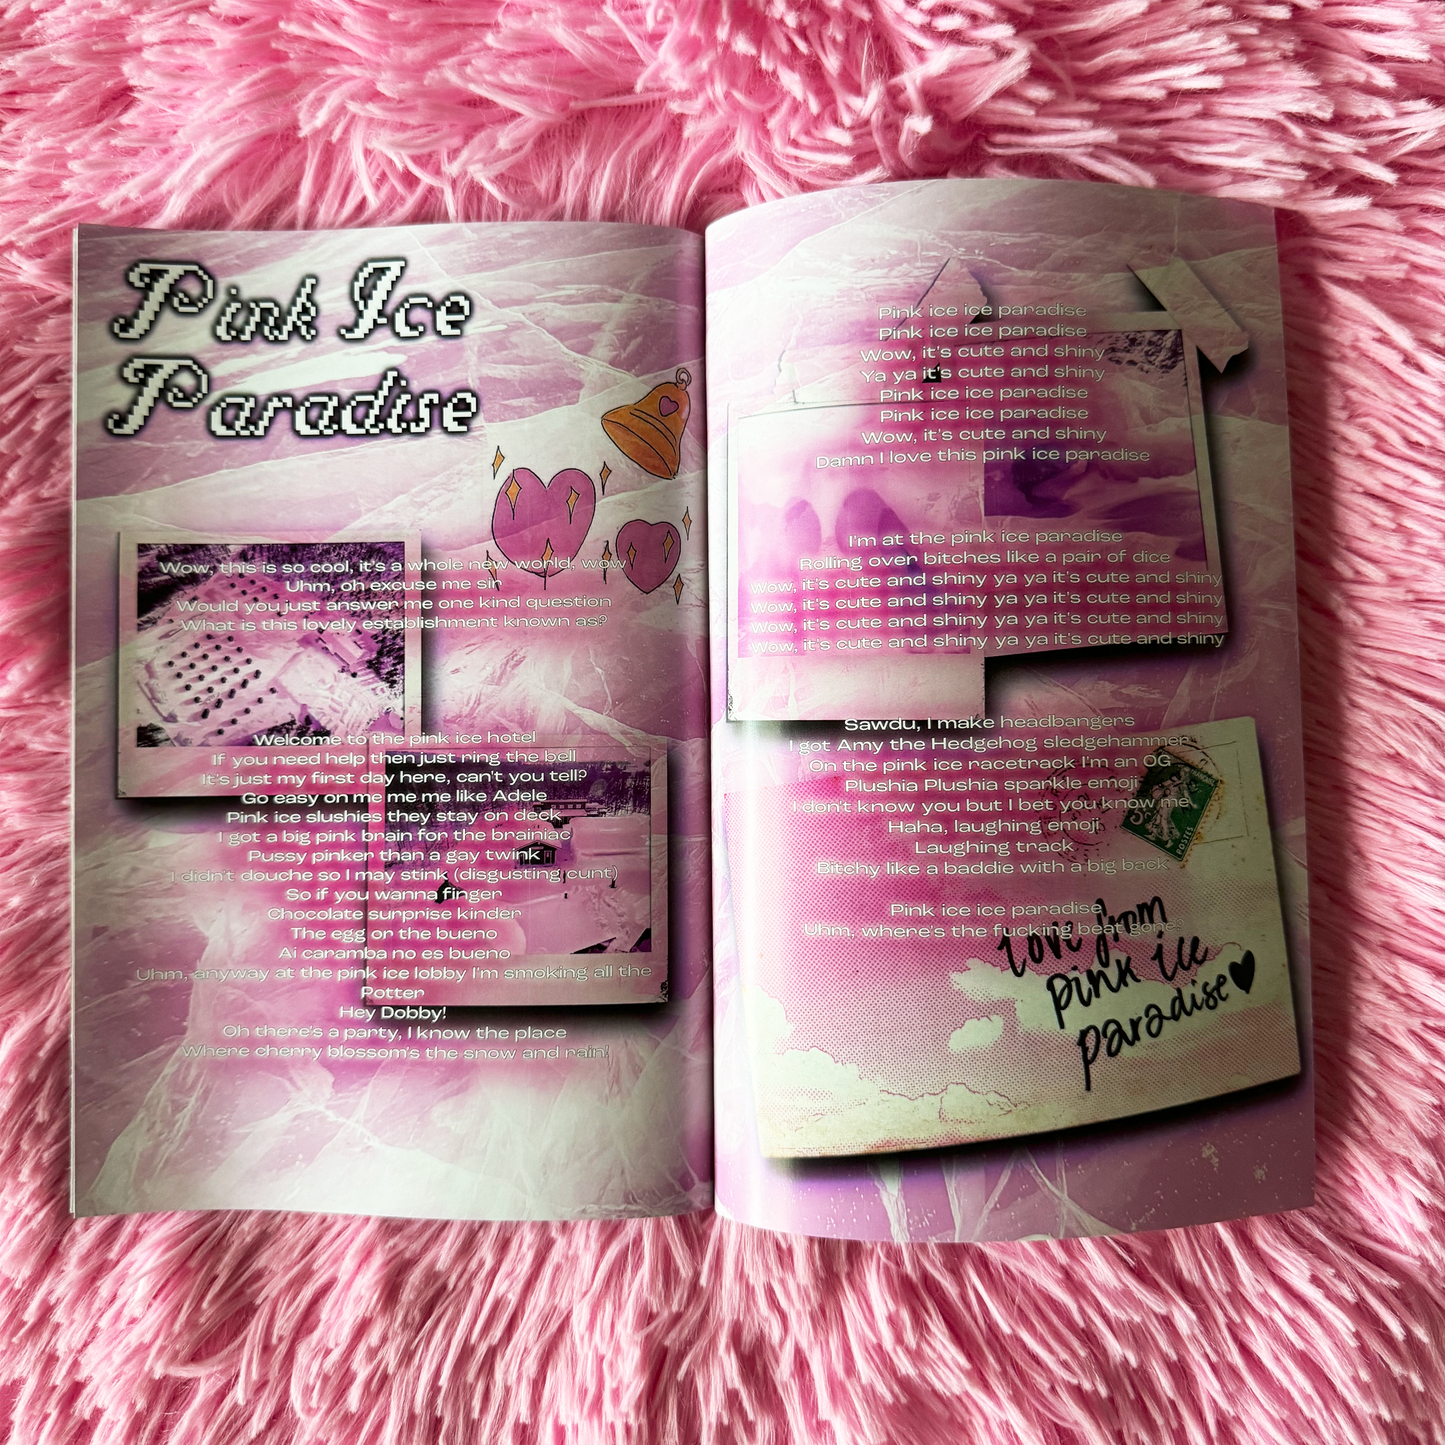 Pink Ice
Paradise
Wow, this is so cool, it's a whole new world, wow
Uhm, oh excuse me sir
Would you just answer me one kind question
What is this lovely establishment known as?
Welcome to the pink ice hotel
If you need help then just ring the bell
It's just my first day here, can't you tell?
Go easy on me me me like Adele
Pink ice slushies they stay on deck
I got a big pink brain for the brainiac
Pussy pinker than a gay twink
I didn't douche so I may stink (disgusting cunt)
So if you wanna finger
Chocolate surprise kinder
The egg or the bueno
Ai caramba no es bueno
Uhm, anyway at the pink ice lobby I'm smoking all the
Potter
Hey Dobby!
Oh there's a party, I know the place
Where cherry blossom's the snow and rain!
Pink ice ice paradise
Pink ice ice paradise
Wow, it's cute and shiny
Ya ya it's cute and shiny
Pink ice ice paradise
Pink ice ice paradise
Wow, it's cute and shiny
Damn I love this pink ice paradise
I'm at the pink ice paradise
Rolling over bitches like a pair of dice
Wow, it's cute and shiny ya ya it's cute and shiny
Wow, it's cute and shiny ya ya it's cute and shiny
Wow, it's cute and shiny ya ya it's cute and shiny
Wow, it's cute and shiny ya ya it's cute and shiny
Sawdu, I make headbangers
I got Amy the Hedgehog sledgehammer
On the pink ice racetrack I'm an OG
Plushia Plushia sparkle emoji
I don't know you but I bet you know me
Haha, laughing emoji
Laughing track
Bitchy like a baddie with a big back
Pink ice ice paradise
Uhm, where's the fucking beat gone?
love from
pink ice
paradise
POSTES